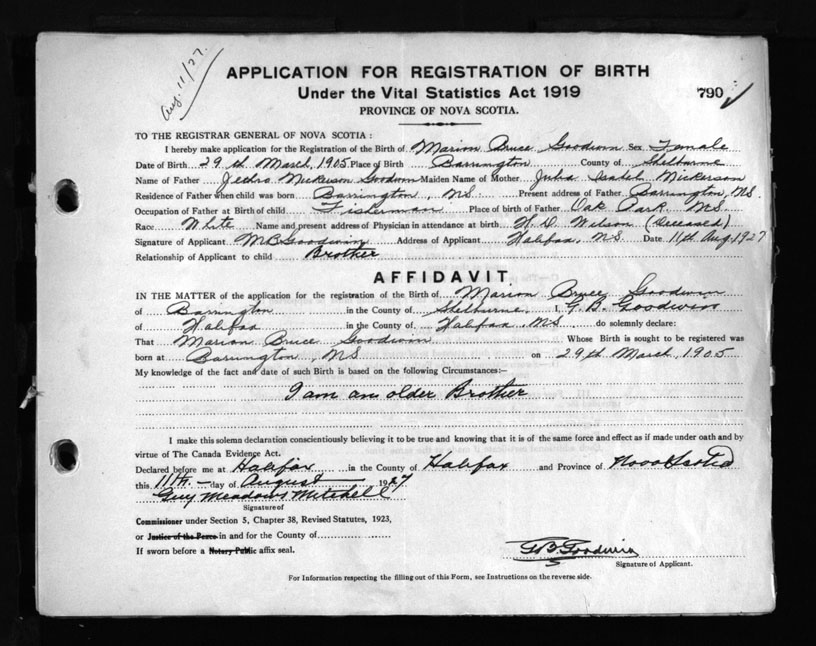 Aug. 11/27.
APPLICATION FOR REGISTRATION OF BIRTH
Under the Vital Statistics Act 1919
790
PROVINCE OF NOVA SCOTIA.
TO THE REGISTRAR GENERAL OF NOVA SCOTIA :
I hereby make application for the Registration of the Birth of Marion Bruce Goodwin Sex Female
Date of Birth 29th March, 1905 Place of Birth Barrington County of Shelburne
Name of Father Nickerson Goodwin Maiden Name of Mother Julia Isabel Nickerson
Residence of Father when child was born Barrington, NS. Present address of Father Barrington, NS.
Occupation of Father at Birth of child Fisherman Place of birth of Father Oak Park, NS
Race White Name and present address of Physician in attendance at birth H. D. Wilson (Deceased)
Signature of Applicant Goodwin Address of Applicant Halifax, NS Date 11th Aug. 1927
Relationship of Applicant to child Brother
AFFIDAVIT
IN THE MATTER of the application for the registration of the Birth of Marion Bruce Goodwin
of Barrington in the County of Shelburne. I, G. B. Goodwin
of Halifax in the County of Halifax, NS, do solemnly declare:
That Marion Bruce Goodwin Whose Birth is sought to be registered was
born at Barrington, NS on 29th March, 1905
My knowledge of the fact and date of such Birth is based on the following Circumstances:—
I am an older Brother
I make this solemn declaration conscientiously believing it to be true and knowing that it is of the same force and effect as if made under oath and by
virtue of The Canada Evidence Act.
Declared before me at Halifax in the County of Halifax and Province of Nova Scotia
this 11th.— day of August 1927
Guy Meadows Mitchell
Signature of
Commissioner under Section 5, Chapter 38, Revised Statutes, 1923,
or Justice of the Peace in and for the County of
If sworn before a Notary Public affix seal.
G.B. Goodwin
Signature of Applicant.
For Information respecting the filling out of this Form, see Instructions on the reverse side.